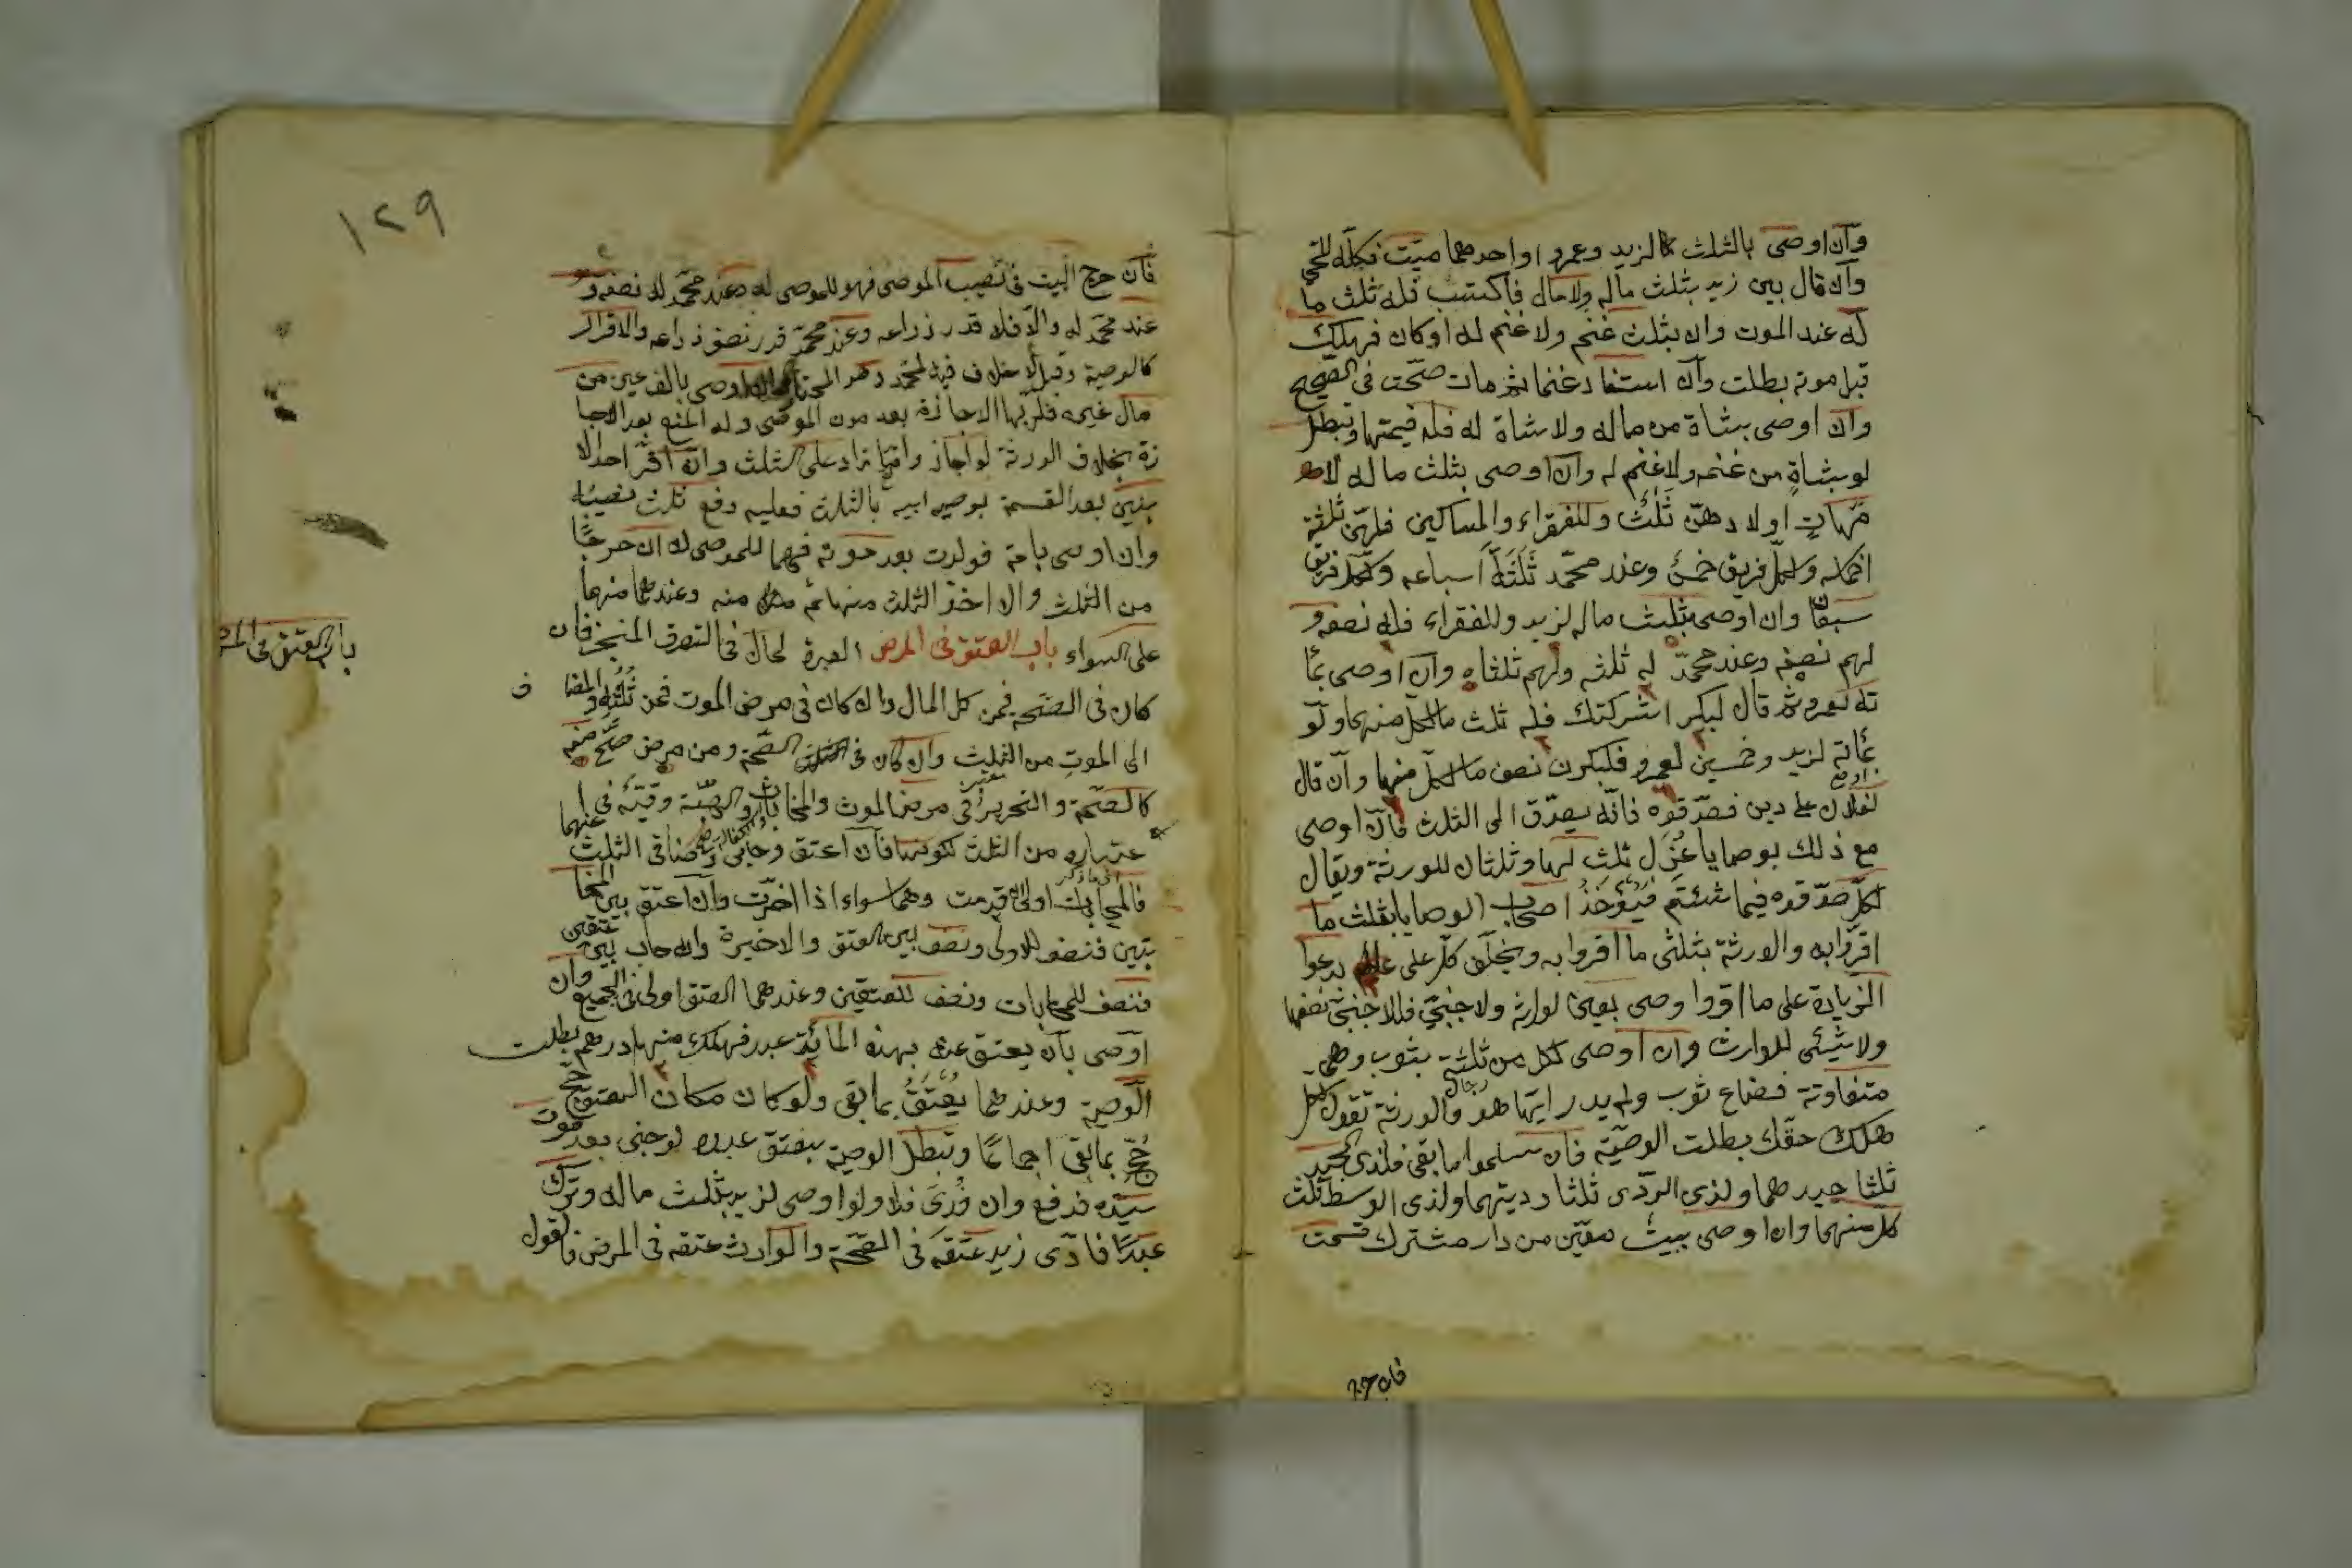 وان اوصى بالثلث لزيد وعمرو واحدهما ميت فكله للحي
وان قال بين زيد بثلث ماله ولا مال فاكتسب فله ثلث ما
له عند الموت وان بثلث غنم ولا غنم له او كان فهلك
قبل موته بطلت وان استفاد غنما ثم مات صحت في الصحيح
وان اوصى بشاة من ماله ولا شاة له فله قيمتها وتبطل
لو بشاة من غنمه ولا غنم له وان اوصى بثلث ماله لا
مهات اولاده وهن ثلث وللفقراء والمساكين فلهن ثلثة
اخماسه ولكل فريق خمس وعند محمد ثلثة اسباعه ولكل فريق
سبعان وان اوصى بثلث ماله لزيد وللفقراء فله نصفه و
لهم نصفه وعند محمد له ثلثه ولهم ثلثاه وان اوصى بمأ
ته لعمرو ثم قال لبكر اشركتك فله ثلث ما لكل منهما ولو
بمأته لزيد وخمسين لعمرو فلبكر نصف ما لكل منهما وان قال
لفلان على دين فصدقوه فانه يصدق الى الثلث فان اوصى
مع ذلك بوصايا عزل ثلث لها وثلثان للورثة ويقال
لكل صدقوه فيما شئتم فيؤخذ اصحاب الوصايا بثلث ما
اقروا به والورثة بثلثى ما اقروا به ويحلف كل على يدعوا
الزيادة على ما اقروا وصى بعين لوارثه ولاجنبى فللاجنبى نصفها
ولا شيئى للوارث وان اوصى لكل من ثلثة بثوب وهى
متفاوتة فضاع ثوب ولم يدر ايها هو والورثة تقول لكل
هلك حقك بطلت الوصية فان سلموا ما بقى فلذى الجيد
ثلثا جيدهما ولذى الردى ثلثا رديهما ولذى الوسط ثلث
كل منهما وان اوصى ببيت معين من دار مشترك قسمت
فان خرج
١٢٩
فان خرج البيت في نصيب الموصى فهو للموصى له وعند محمد له نصفه و
عند محمد له والا فله قدر ذراعه وعند محمد قدر نصف ذراعه والاقرار
كالوصية وقيل لا خلاف فيه لمحمد وهو المختار وان اوصى بالف عين من
مال غيره فلربها الاجازة بعد موت الموصى وله المنع بعد الاجا
زة بخلاف الورثة لو اجاز وا فيما زاد على الثلث وان اقر احد الا
بنين بعد القسمة بوصية ابيه بالثلث فعليه دفع ثلث نصيبه
وان اوصى بامة فولدت بعد موته فهما للموصى له ان خرجا
من الثلث والا اخذ الثلث منها ثم منه وعندهما منهما
على السواء باب العتق في المرض العبرة لحال في التصرف المنجز فان
باب العتق في المر
كان في الصحة فمن كل المال وان كان في مرض الموت فمن ثلثه والمضا
ف
الى الموت من الثلث وان كان في الصحة ومن مرض صح منه
كالصحة والتحرير في مرض الموت والمحابات والهبة وقية في ا
عتباره من الثلث فان اعتق وحابى وضاق الثلث عنهما
فالمحابات اولى ان قدمت وهما سواء اذا اخرت وان اعتق بين المحا
بتين فنصف للاولى ونصف بين العتق والاخيرة وان حاب بين عتقين
فنصف للمحابات ونصف للعتقين وعندهما العتق اولى في الجميع وان
اوصى بان يعتق عنه بهذه المائة عبد فهلك منها درهم بطلت
الوصية وعندهما يعتق بما بقى ولو كان مكان العتق حج
حج بما بقى اجماعا وتبطل الوصية بعتق عبده لو جنى بعد موت
سيده فدفع وان فدى فلا ولو اوصى لزيد بثلث ماله وترك
عبدا فادعى زيد عتقه في الصحة والوارث عتقه في المرض فالقول